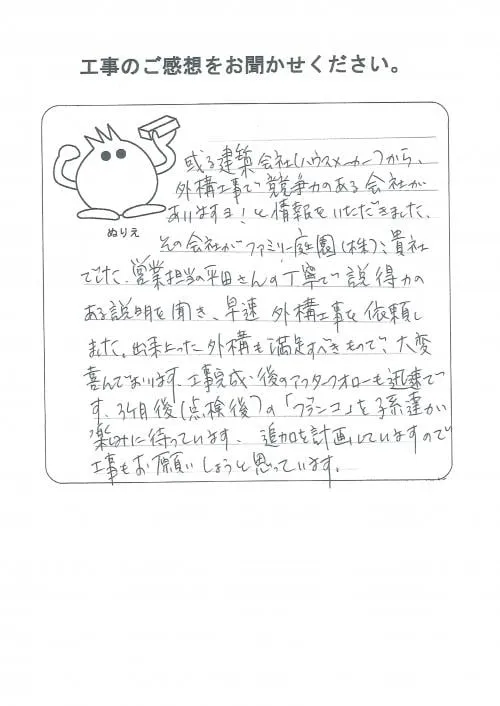 工事のご感想をお聞かせください。
ぬりえ
或る建築会社(ハウスメーカー)から、
外構工事で競争力のある会社が
ありますヨ!と情報をいただきました。
その会社がファミリー庭園(株):貴社
でした。営業担当の平田さんの丁寧で説得力の
ある説明を聞き、早速外構工事を依頼し
ました。出来上った外構も満足すべきもので、大変
喜んでおります。工事完成後のアフターフォローも迅速で
す。3ケ月後(点検後)の「ブランコ」を子孫達が
楽しみに待っています。追加を計画していますので
工事もお願いしようと思っています。